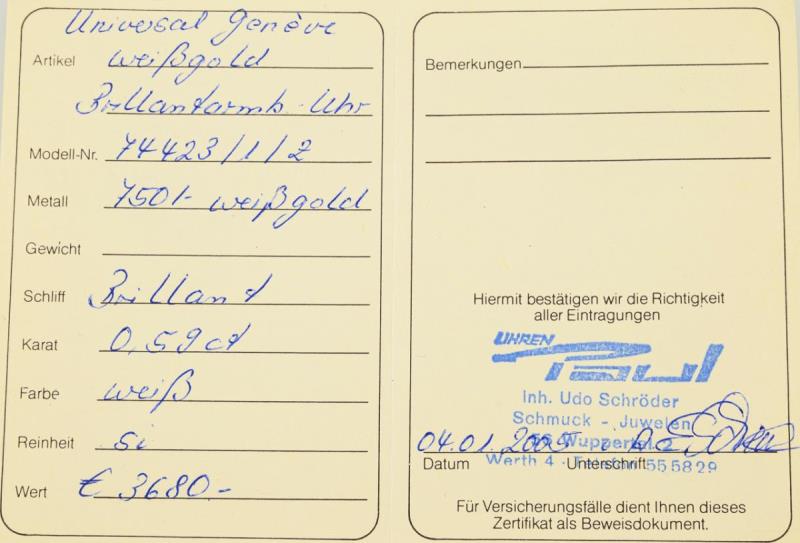 Universal Genève
Artikel weißgold
Brillantarmb. Uhr
Modell-Nr. 74423/1/2
Metall 750/- weißgold
Gewicht
Schliff Brillant
Karat 0,59 ct
Farbe weiß
Reinheit Si
Wert € 3680.-
Bemerkungen
Hiermit bestätigen wir die Richtigkeit
aller Eintragungen
UHREN
Paul
Inh. Udo Schröder
Schmuck - Juwelen
56 Wuppertal 2
Werth 4 - Telefon 555829
04.01.2005
Datum Unterschrift
Für Versicherungsfälle dient Ihnen dieses
Zertifikat als Beweisdokument.